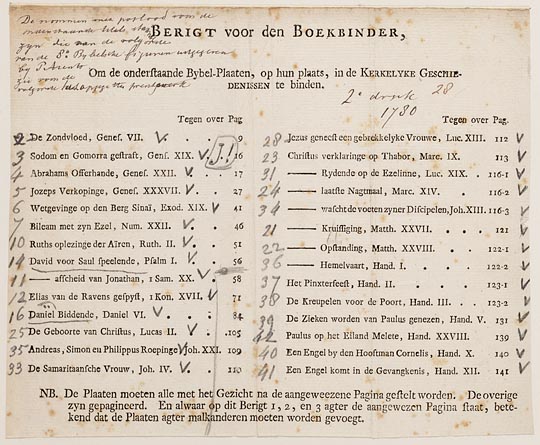 De nommers met potlood voor de
zyn die van de volgorde
van de 8° Bybelsche figuren uitgegeven
by
BERIGT voor den BOEKBINDER,
Om de onderstaande Bybel-Plaaten, op hun plaats, in de KERKELYKE GESCHIE-
DENISSEN te binden.
2e druk 28
1730
Tegen over Pag.
2 De Zondvloed, Genes. VII. V . . 9
3 Sodom en Gomorra gestraft, Gens. XIX. V J! 16
4 Abrahams Offerhande, Genes. XXII. V . 17
5 Jozeps Verkopinge, Genes. XXXVII. V . 27
6 Wetgevinge op den Berg Sinaï, Exod. XIX. V 41
7 Bileam met zyn Ezel, Num. XXII. V . 46
10 Ruths oplezinge der Aïren, Ruth. II. V . 51
14 David voor Saul speelende, Psalm I. V . 56
11 —— afscheid van Jonathan, 1 Sam. XX. V 58
12 Elias van de Ravens gespyst, 1 Kon. XVII. V 71
16 Daniel Biddende, Daniel VI. V . . 84
25 De Geboorte van Christus, Lucas II. V .105
35 Andreas, Simon eu Philippus Roepinge V Joh. XXI. 109
33 De Samaritaansche Vrouw, Joh. IV. V . 110
Tegen over Pag.
28 Jezus geneest een gebrekkelyke Vrouwe, Luc. XIII. 112 V
23 Christus verklaringe op Thabor, Marc. IX. 113 V
31 —— Rydende op de Ezelinne, Luc. XIX. 116-1 V
24 —— laatste Nagtmaal, Marc. XIV. . 116-2 V
34 —— wascht de voeten zyner Discipelen, Joh. XIII. 116-3 V
21 —— Kruissiging, Matth. XXVII. . 121 V
22 —— Opstanding, Matth. XXVIII. . 122-1 V
36 —— Hemelvaart, Hand. I. . . 122-2 V
37 Het Pinxterfeest, Hand. II. . . 123-1 V
38 De Kreupelen voor de Poort, Hand. III. . 123-2 V
39 De Zieken worden van Paulus genezen, Hand. V. 131 V
42 Paulus op het Eiland Melete, Hand. XXVIII. 139 V
40 Een Engel by den Hooftman Cornelis, Hand. X. 140 V
41 Een Engel komt in de Gevangkenis, Hand. XII. 141 V
NB. De Plaaten moeten alle met het Gezicht na de aangeweezene Pagina gestelt worden. De overige
zyn gepagineerd. En alwaar op dit Berigt 1, 2, en 3 agter de aangewezen Pagina staat, bete-
kend dat de Plaaten agter malkanderen moeten worden gevoegt.